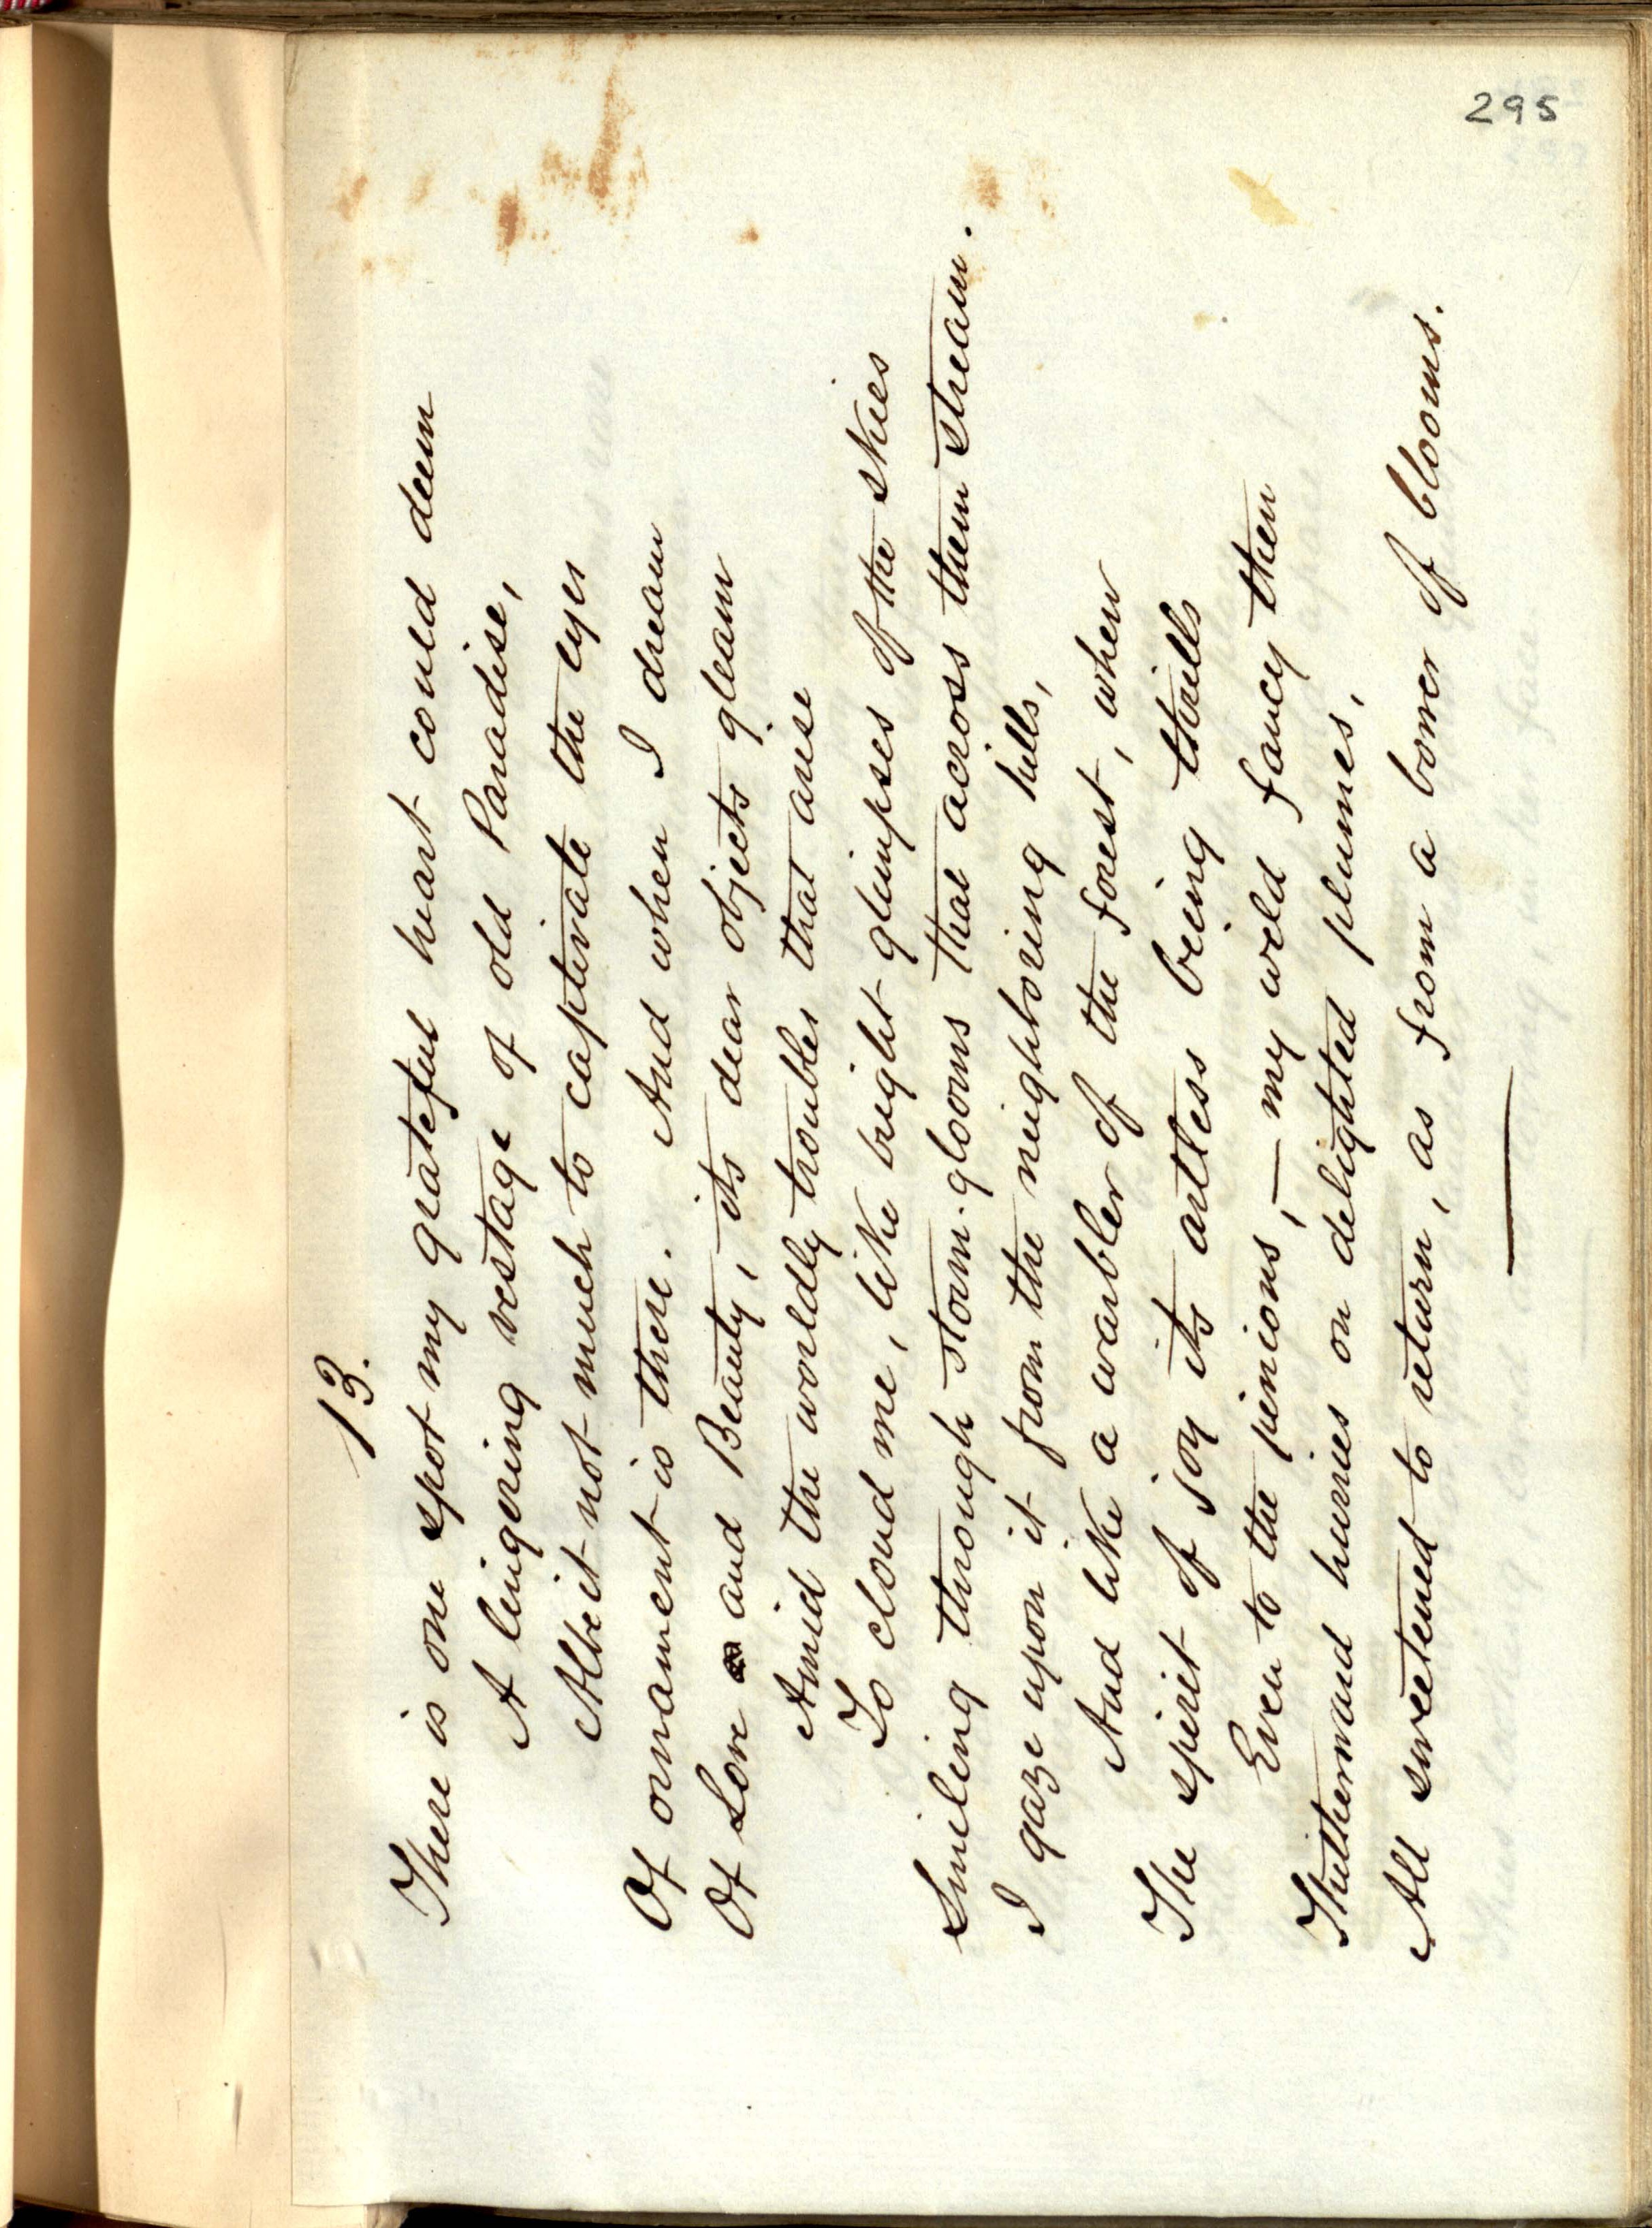 295
13.
There is one spot my grateful heart could deem
A lingering vestage of old Paradise,
Albeit not much to captivate the eyes
Of ornament is there. And when I dream
Of Love and Beauty, its dear objects gleam
Amid the worldly troubles that arise
To cloud me, like bright glimpses of the skies
Smiling through storm-glooms that across them stream.
I gaze upon it from the neighboring hills,
And like a warbler of the forest, when
The spirit of joy its artless being thrills
Even to the pinions,—my weld fancy then
Thitherward hurries on delighted plumes,
All sweetened to return, as from a bower of blooms.